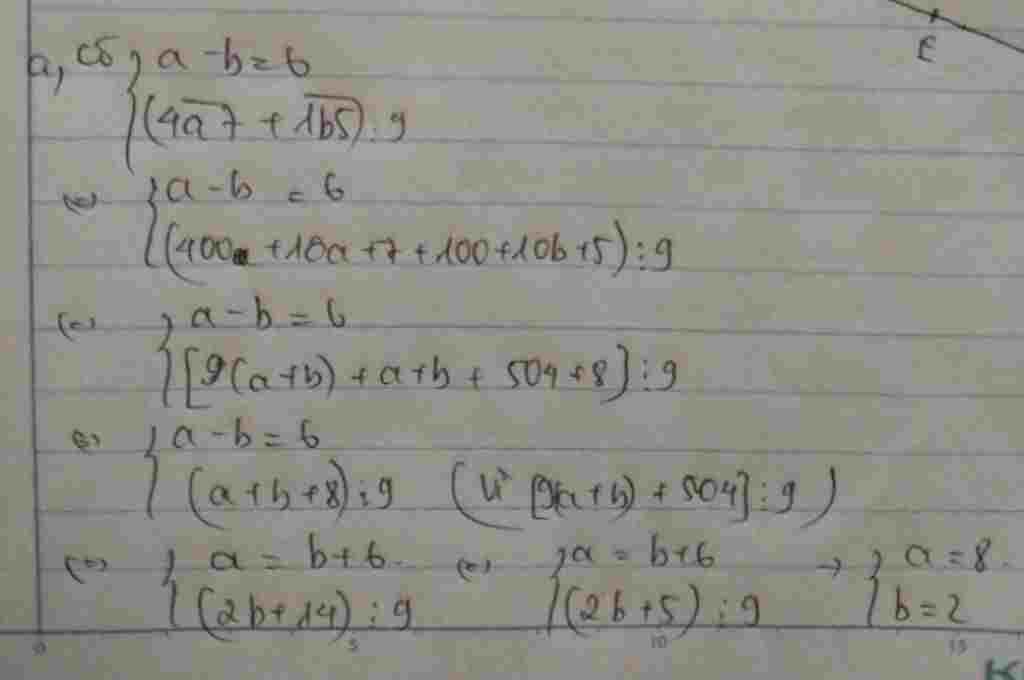 E
a, có { a - b = 6
(4a7 + 1b5) ⋮ 9
(=) { a - b = 6
(400 + 10a + 7 + 100 + 10b + 5) ⋮ 9
(=) { a - b = 6
[9(a+b) + a+b + 504 + 8] ⋮ 9
(=) { a - b = 6
(a + b + 8) ⋮ 9 (Vì [9(a+b) + 504] ⋮ 9)
(=) { a = b + 6 (=) { a = b + 6 → { a = 8
(2b + 14) ⋮ 9 (2b + 5) ⋮ 9 b = 2
0 5 10 15
K